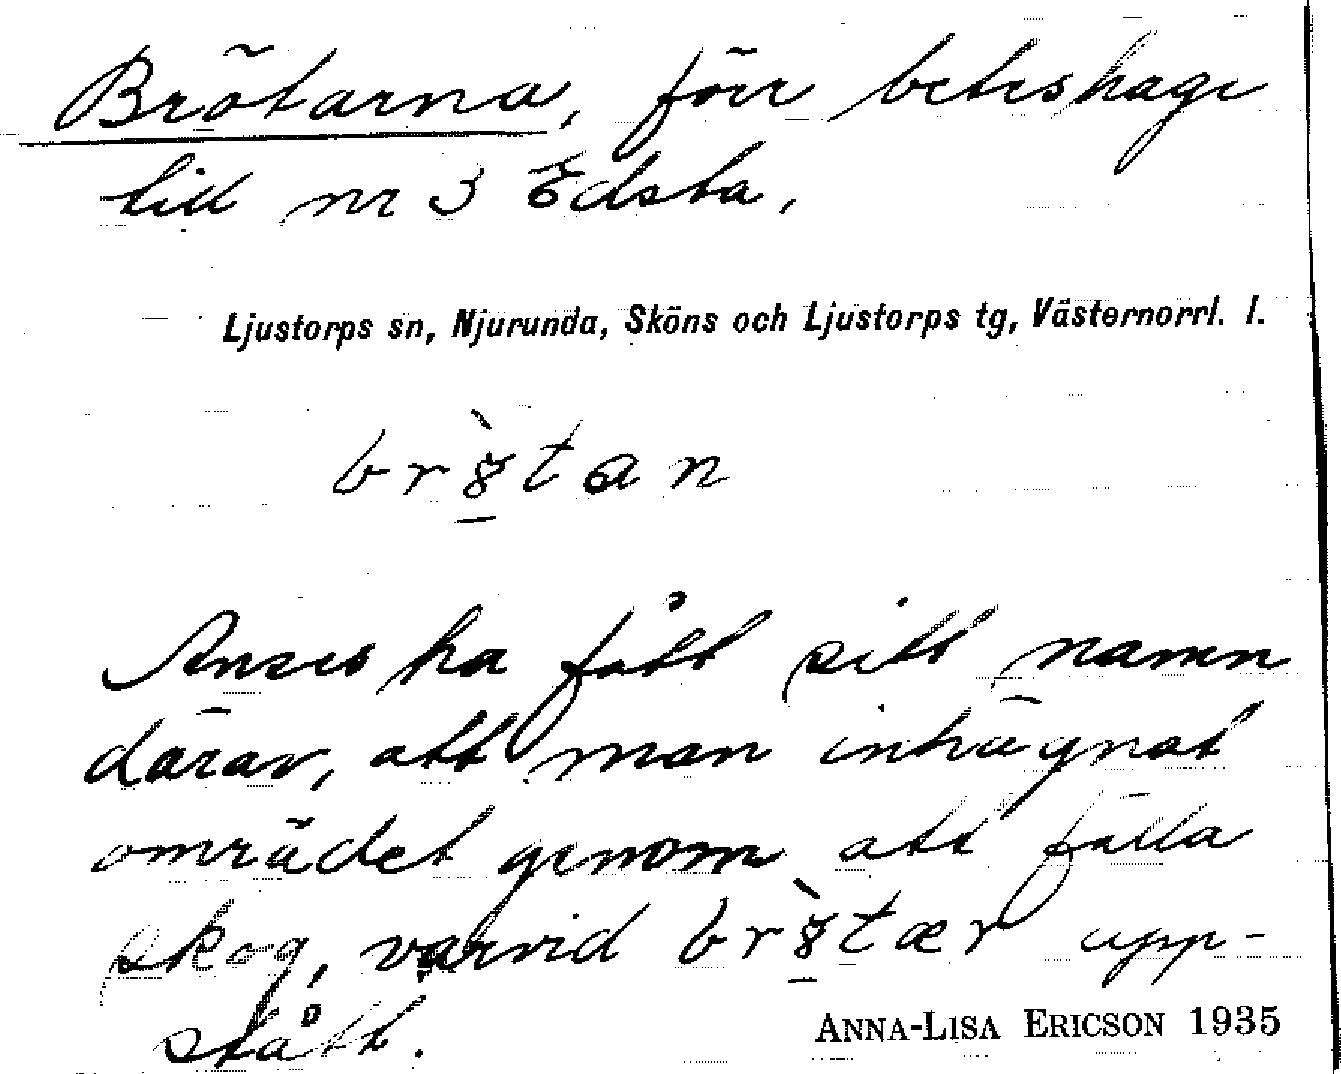 Brötarna, förr beteshage
till nr 3 Edsta,
Ljustorps sn, Njurunda, Sköns och Ljustorps tg, Västernorrl. l.
br8̠̀tan
Anses ha fått sitt namn
därav, att man inhägnat
området genom att fälla
skog, varvid br8̠̀tær upp-
stått.
ANNA-LISA ERICSON 1935